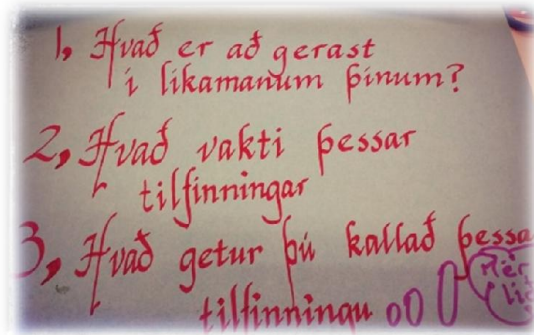 1, Hvað er að gerast
í likamanum þinum?
2, Hvað vakti þessar
tilfinningar
3, Hvað getur þú kallað þessa
tilfinningu
Mér